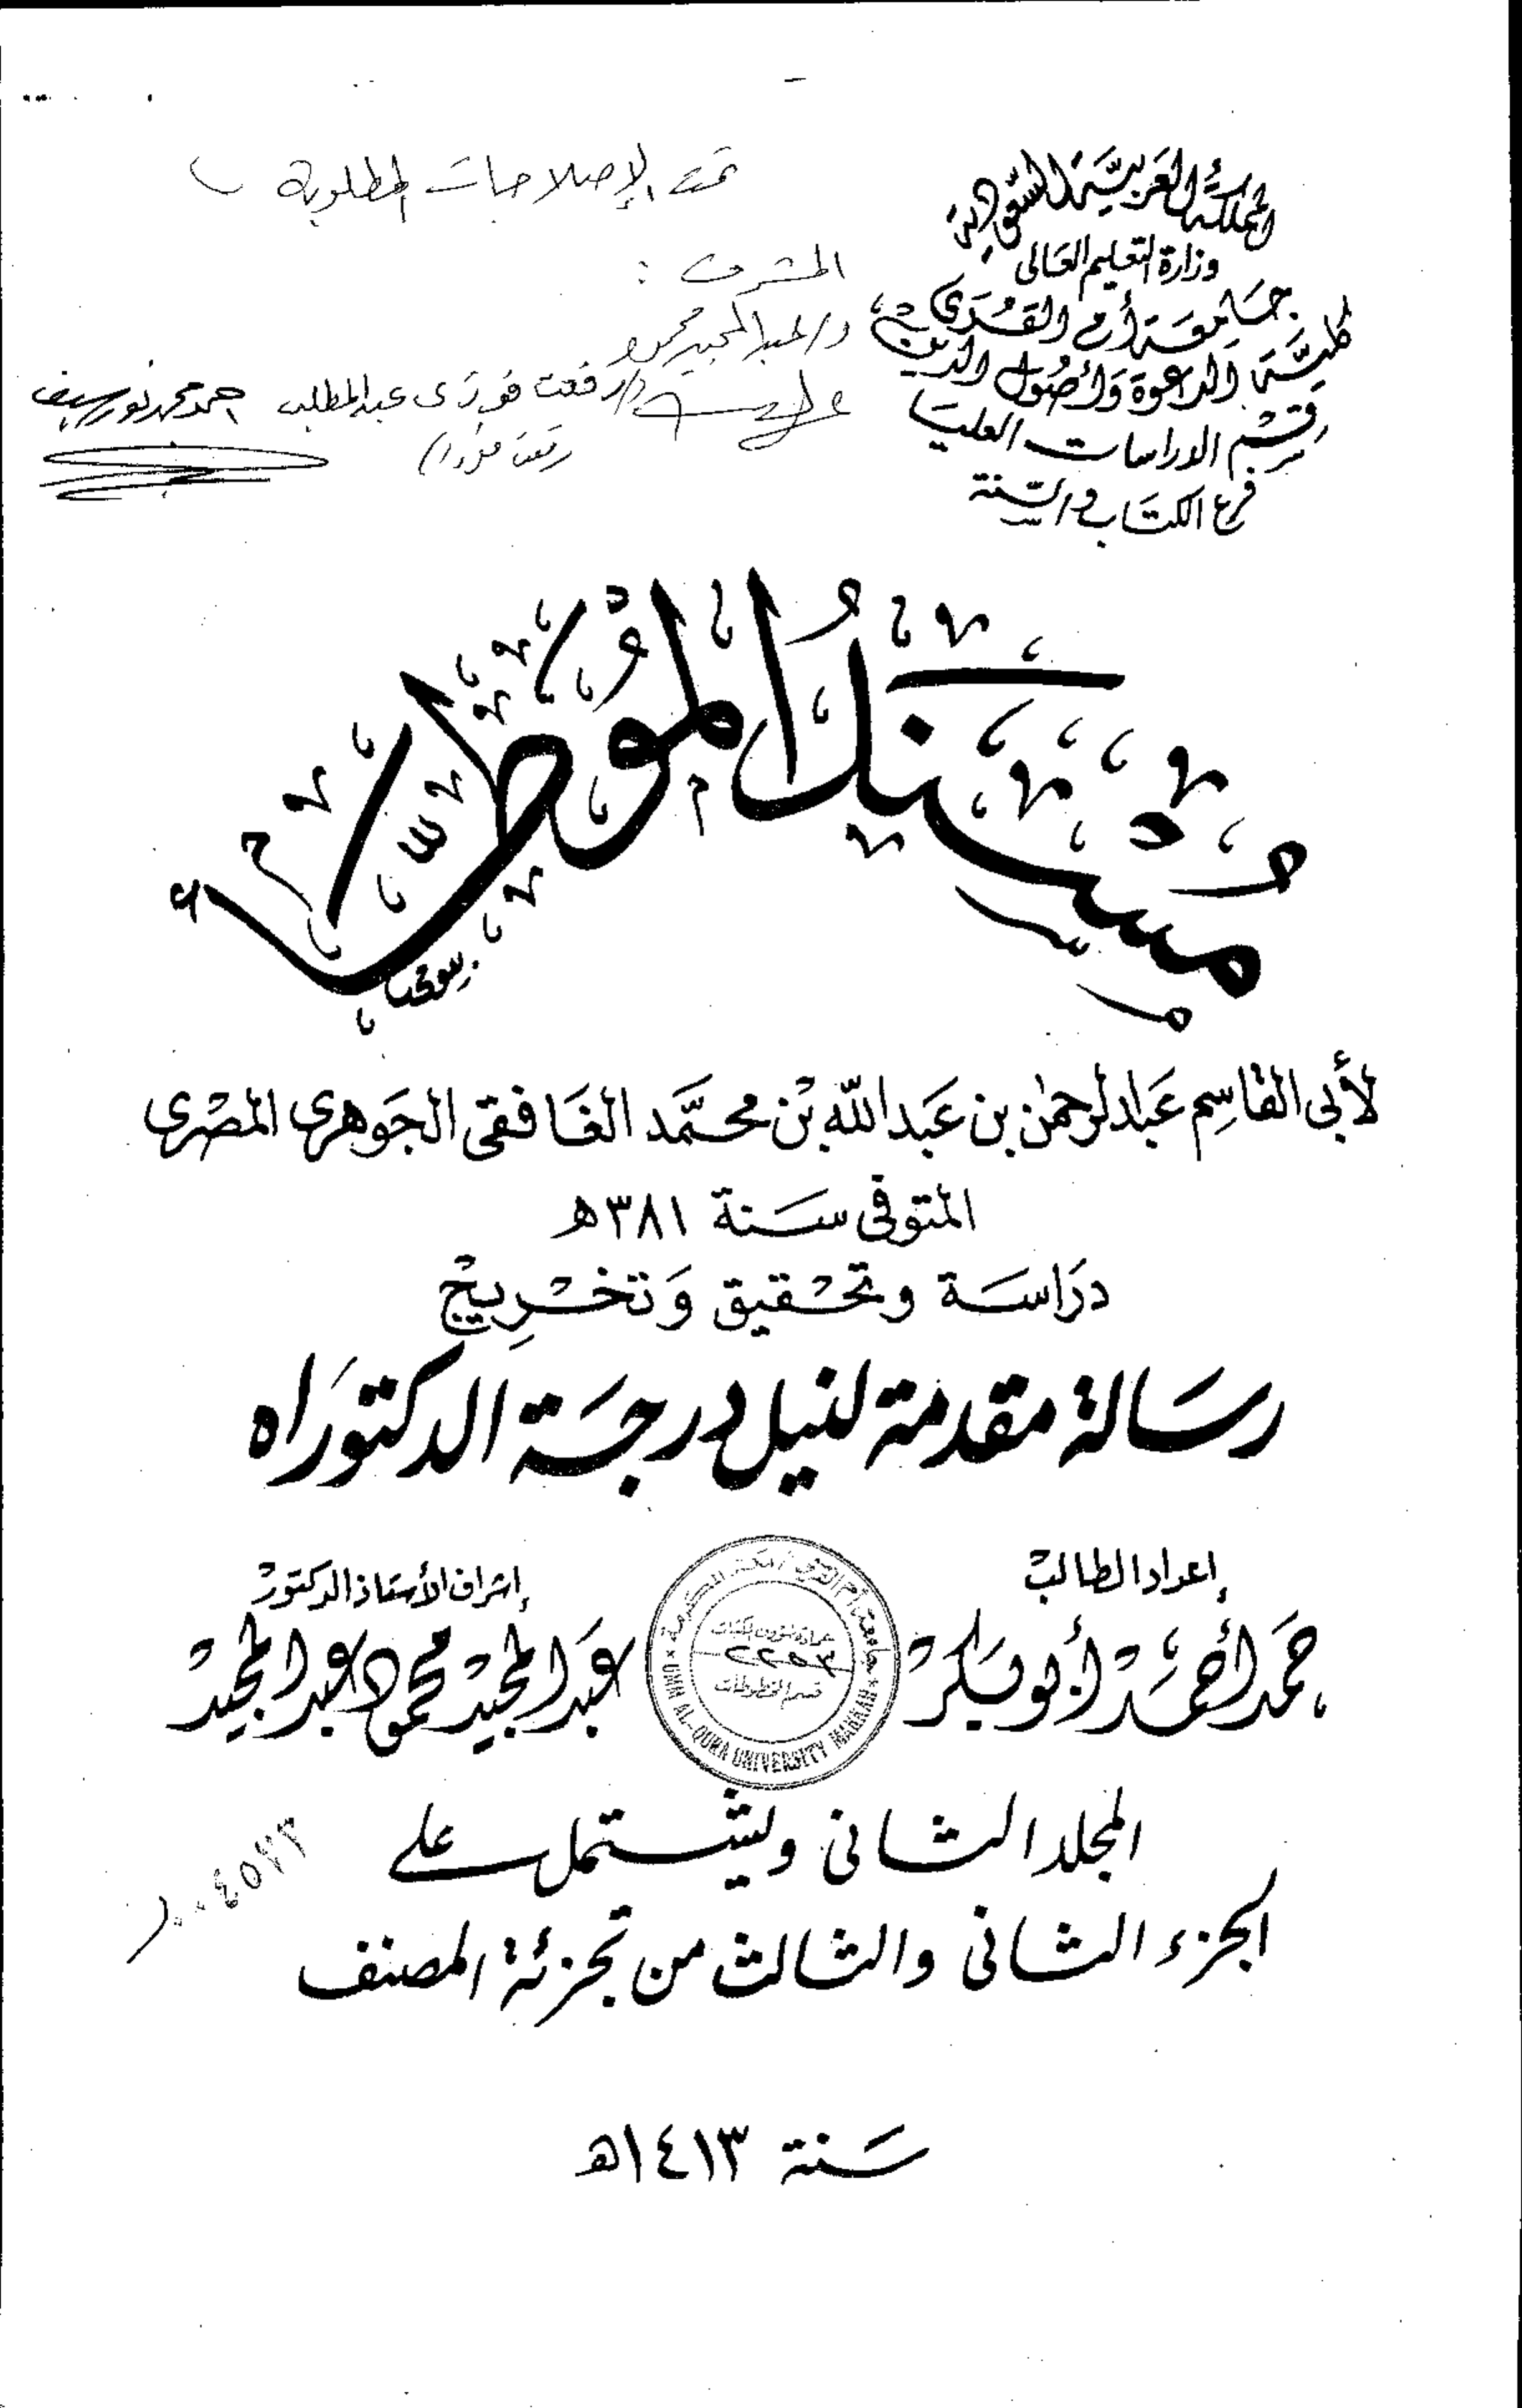 المملكة العربية السعودية
وزارة التعليم العالى
جامعة أم القرى
كلية الدعوة وأصول الدين
قسم الدراسات العليا
فرع الكتاب والسنة
تمت الإصلاحات المطلوبة
المشرف :
د/عبد المجيد محمود
د/رفعت فوزى عبد المطلب
احمد محمد نور سيف
رفعت فوزى
مُسْنَدُ المُوَطَّأ
لأبى القاسِم عَبد الرحمٰن بن عَبد اللّه بْن محمَّد الغَافقى الجَوهرى المصْرى
المتوفى سَنة ٣٨١هـ
دَراسَة وتحْقيق وَتخْرِيجْ
رسَالة مقدمة لنيل درجَة الدكتورَاه
إعداد الطالبْ
حَمَد أحْمَدْ أبو بَكرْ
إشراف الأستاذ الدكتورْ
عَبد المجيْد محمود عبد المجيدْ
جامعة أم القرى / مكة المكرمة
قسم المخطوطات
UMM AL-QURA UNIVERSITY MAKKAH
المجلد الثانى ويشتمل على
الجزء الثانى والثالث من تجزئة المصنف
سَنة ١٤١٣هـ